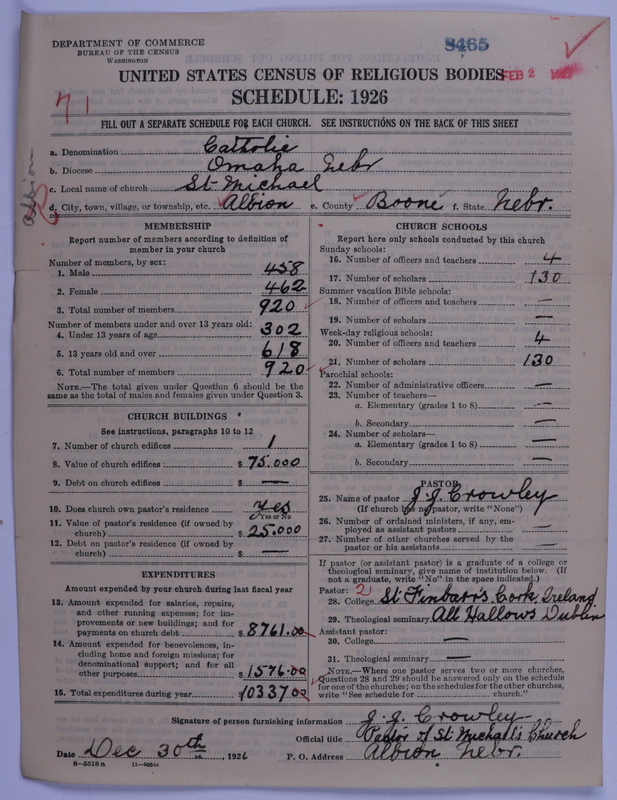 DEPARTMENT OF COMMERCE
BUREAU OF THE CENSUS
WASHINGTON
8465
FEB 2
UNITED STATES CENSUS OF RELIGIOUS BODIES
SCHEDULE: 1926
71
FILL OUT A SEPARATE SCHEDULE FOR EACH CHURCH. SEE INSTRUCTIONS ON THE BACK OF THIS SHEET
a. Denomination Catholic
b. Diocese Omaha Nebr
c. Local name of church St Michael
Albion
d. City, town, village, or township, etc. Albion e. County Boone f. State Nebr.
MEMBERSHIP
Report number of members according to definition of member in your church
Number of members, by sex:
1. Male 458
2. Female 462
3. Total number of members 920
Number of members under and over 13 years old:
4. Under 13 years of age 302
5. 13 years old and over 618
6. Total number of members 920
NOTE.—The total given under Question 6 should be the
same as the total of males and females given under Question 3.
CHURCH BUILDINGS
See instructions, paragraphs 10 to 12
7. Number of church edifices 1
8. Value of church edifices $ 75.000
9. Debt on church edifices $ —
10. Does church own pastor's residence yes
(Yes or No)
11. Value of pastor's residence (if owned by
church) $ 25.000
12. Debt on pastor's residence (if owned by
church) $ —
EXPENDITURES
Amount expended by your church during last fiscal year
13. Amount expended for salaries, repairs,
and other running expenses; for im-
provements or new buildings; and for
payments on church debt $ 8761.00
14. Amount expended for benevolences, in-
cluding home and foreign missions; for
denominational support; and for all
other purposes $ 1576.00
15. Total expenditures during year $ 10337.00
CHURCH SCHOOLS
Report here only schools conducted by this church
Sunday schools:
16. Number of officers and teachers 4
17. Number of scholars 130
Summer vacation Bible schools:
18. Number of officers and teachers —
19. Number of scholars —
Week-day religious schools:
20. Number of officers and teachers 4
21. Number of scholars 130
Parochial schools:
22. Number of administrative officers —
23. Number of teachers—
a. Elementary (grades 1 to 8) —
b. Secondary —
24. Number of scholars—
a. Elementary (grades 1 to 8) —
b. Secondary —
PASTOR
25. Name of pastor J. J. Crowley
(If church has no pastor, write "None")
26. Number of ordained ministers, if any, em-
ployed as assistant pastors —
27. Number of other churches served by the
pastor or his assistants —
If pastor (or assistant pastor) is a graduate of a college or
theological seminary, give name of institution below. (If
not a graduate, write "No" in the space indicated.)
Pastor: 2
28. College St Finbarr's Cork, Ireland
29. Theological seminary All Hallows Dublin
Assistant pastor:
30. College —
31. Theological seminary —
NOTE.—Where one pastor serves two or more churches,
Questions 28 and 29 should be answered only on the schedule
for one of the churches; on the schedules for the other churches,
write "See schedule for church."
Signature of person furnishing information J. J. Crowley
Official title Pastor of St Michall's Church
Date Dec 30th, 1926 P. O. Address Albion Nebr.
8—5518 a